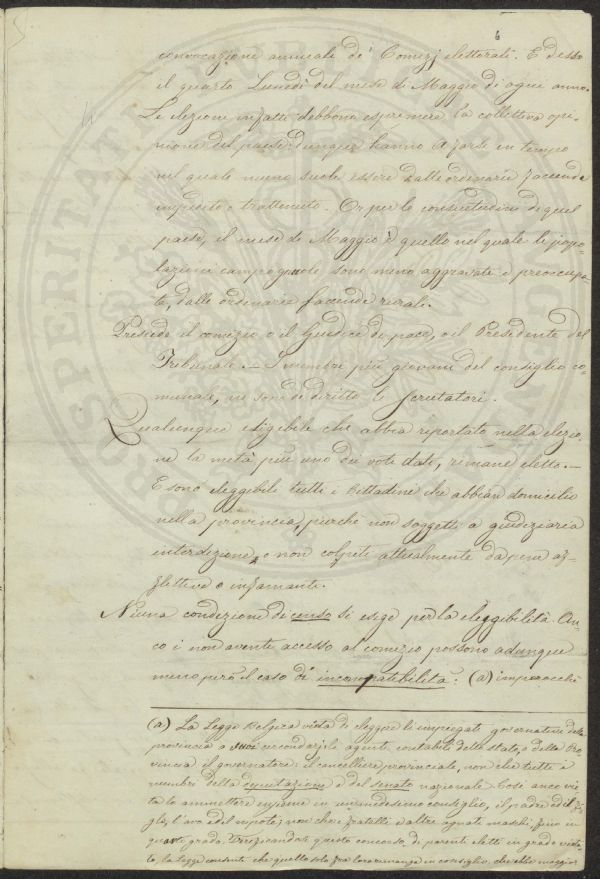 6
convocazione annuale de' Comizj elettorali. È desso
il quarto Lunedì del mese di Maggio di ogni anno.
Le elezione infatti debbono esprimere la collettiva opi-
nione del paese: dunque hanno a farse in tempo
nel quale meno suole essere dalle ordinarie faccende
impedito o trattenuto. Or per le consuetudini di quel
paese, il mese di Maggio è quello nel quale le popo-
lazioni campagnuole sono meno aggravate e preoccupa-
te, dalle ordinarie faccende rurali.
Presiede il comizio o il Giudice di pace, o il Presidente del
Tribunale. — I membri più giovani del consiglio co-
munale, ne sono di diritto li Scrutatori.
Qualunque eligibile che abbia riportato nella elezio-
ne la metà più uno dei voti dati, rimane eletto. —
E sono eleggibili tutti i Cittadini che abbian domicilio
nella provincia, purchè non soggetti a giudiziaria
interdizione, o non colpiti attualmente da pene af-
flettive o infamanti.
Niuna condizione di censo si esige per la eleggibilità. An-
co i non avente accesso al comizio possono adunque
meno però il caso di incompatibilità: (a) imperocchè
(a) La Legge Belgica vieta di eleggere le impiegati governative della
provincia o suoi circondarj: le agenti contabili dello stato, o della Pro-
vincia il governatore: il cancelliere provinciale, non che tutti i
membri della deputazione e del senato nazionale. Così anco vie-
ta lo ammettere insieme in un medesimo consiglio, il padre ed il fi-
glio, l'avo ed il nipote; non che i fratelli e altre agnati maschi, fino in
quarto grado. Verificandosi questo concorso, di parenti eletti in grado vieta-
to, la legge consente che quello solo fra loro rimanga in consiglio, che ebbe maggior